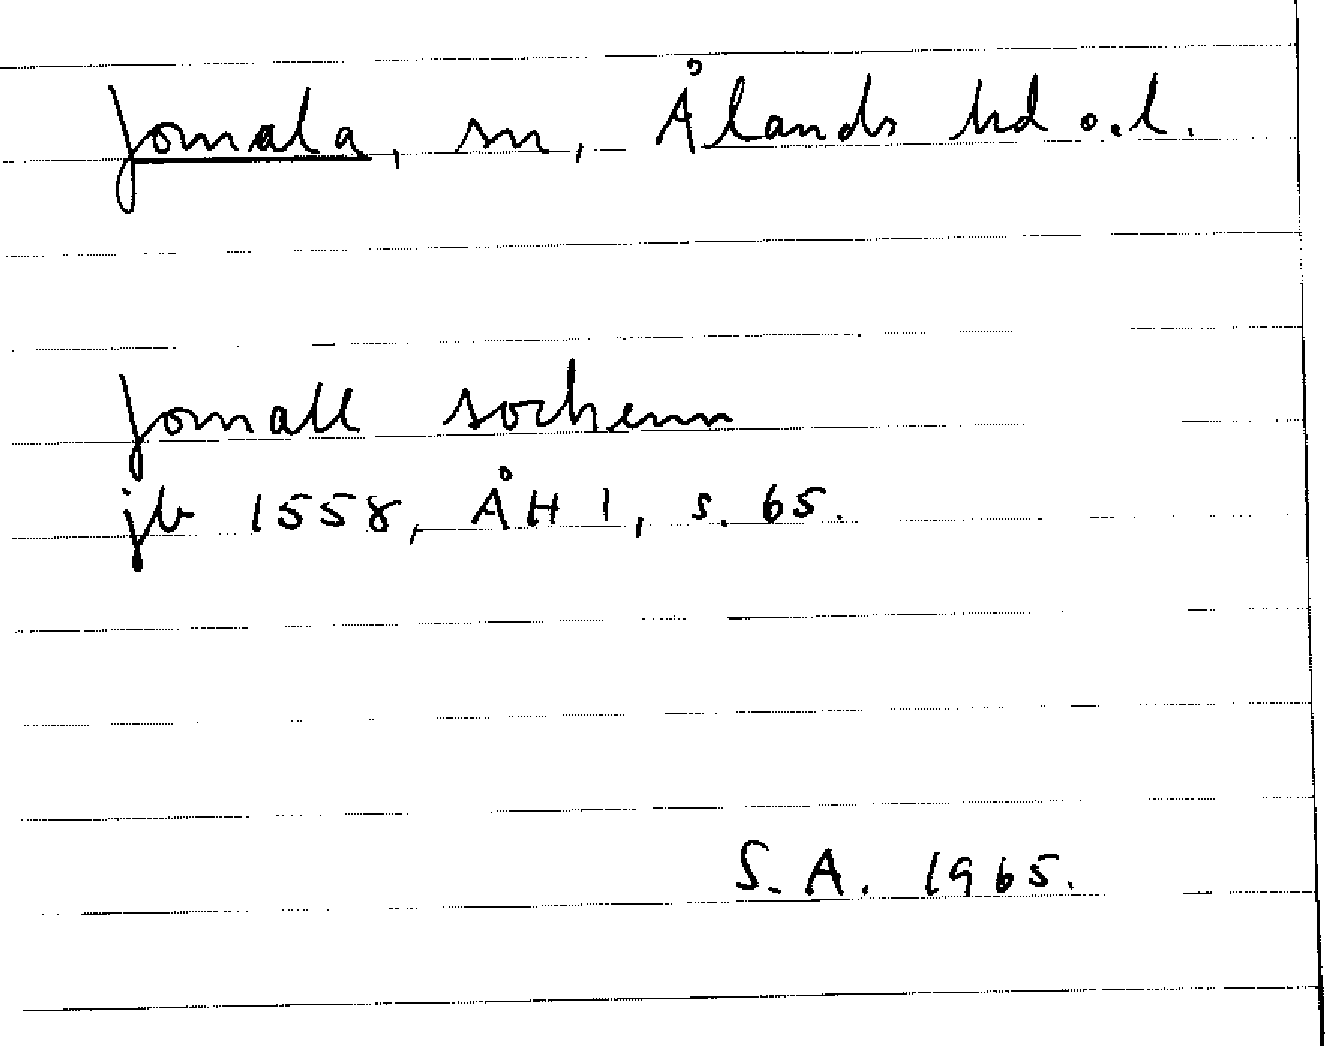 Jomala, sn, Ålands hd o.l.
Jomall sochenn
jb 1558, ÅH 1, s. 65.
S.A. 1965.